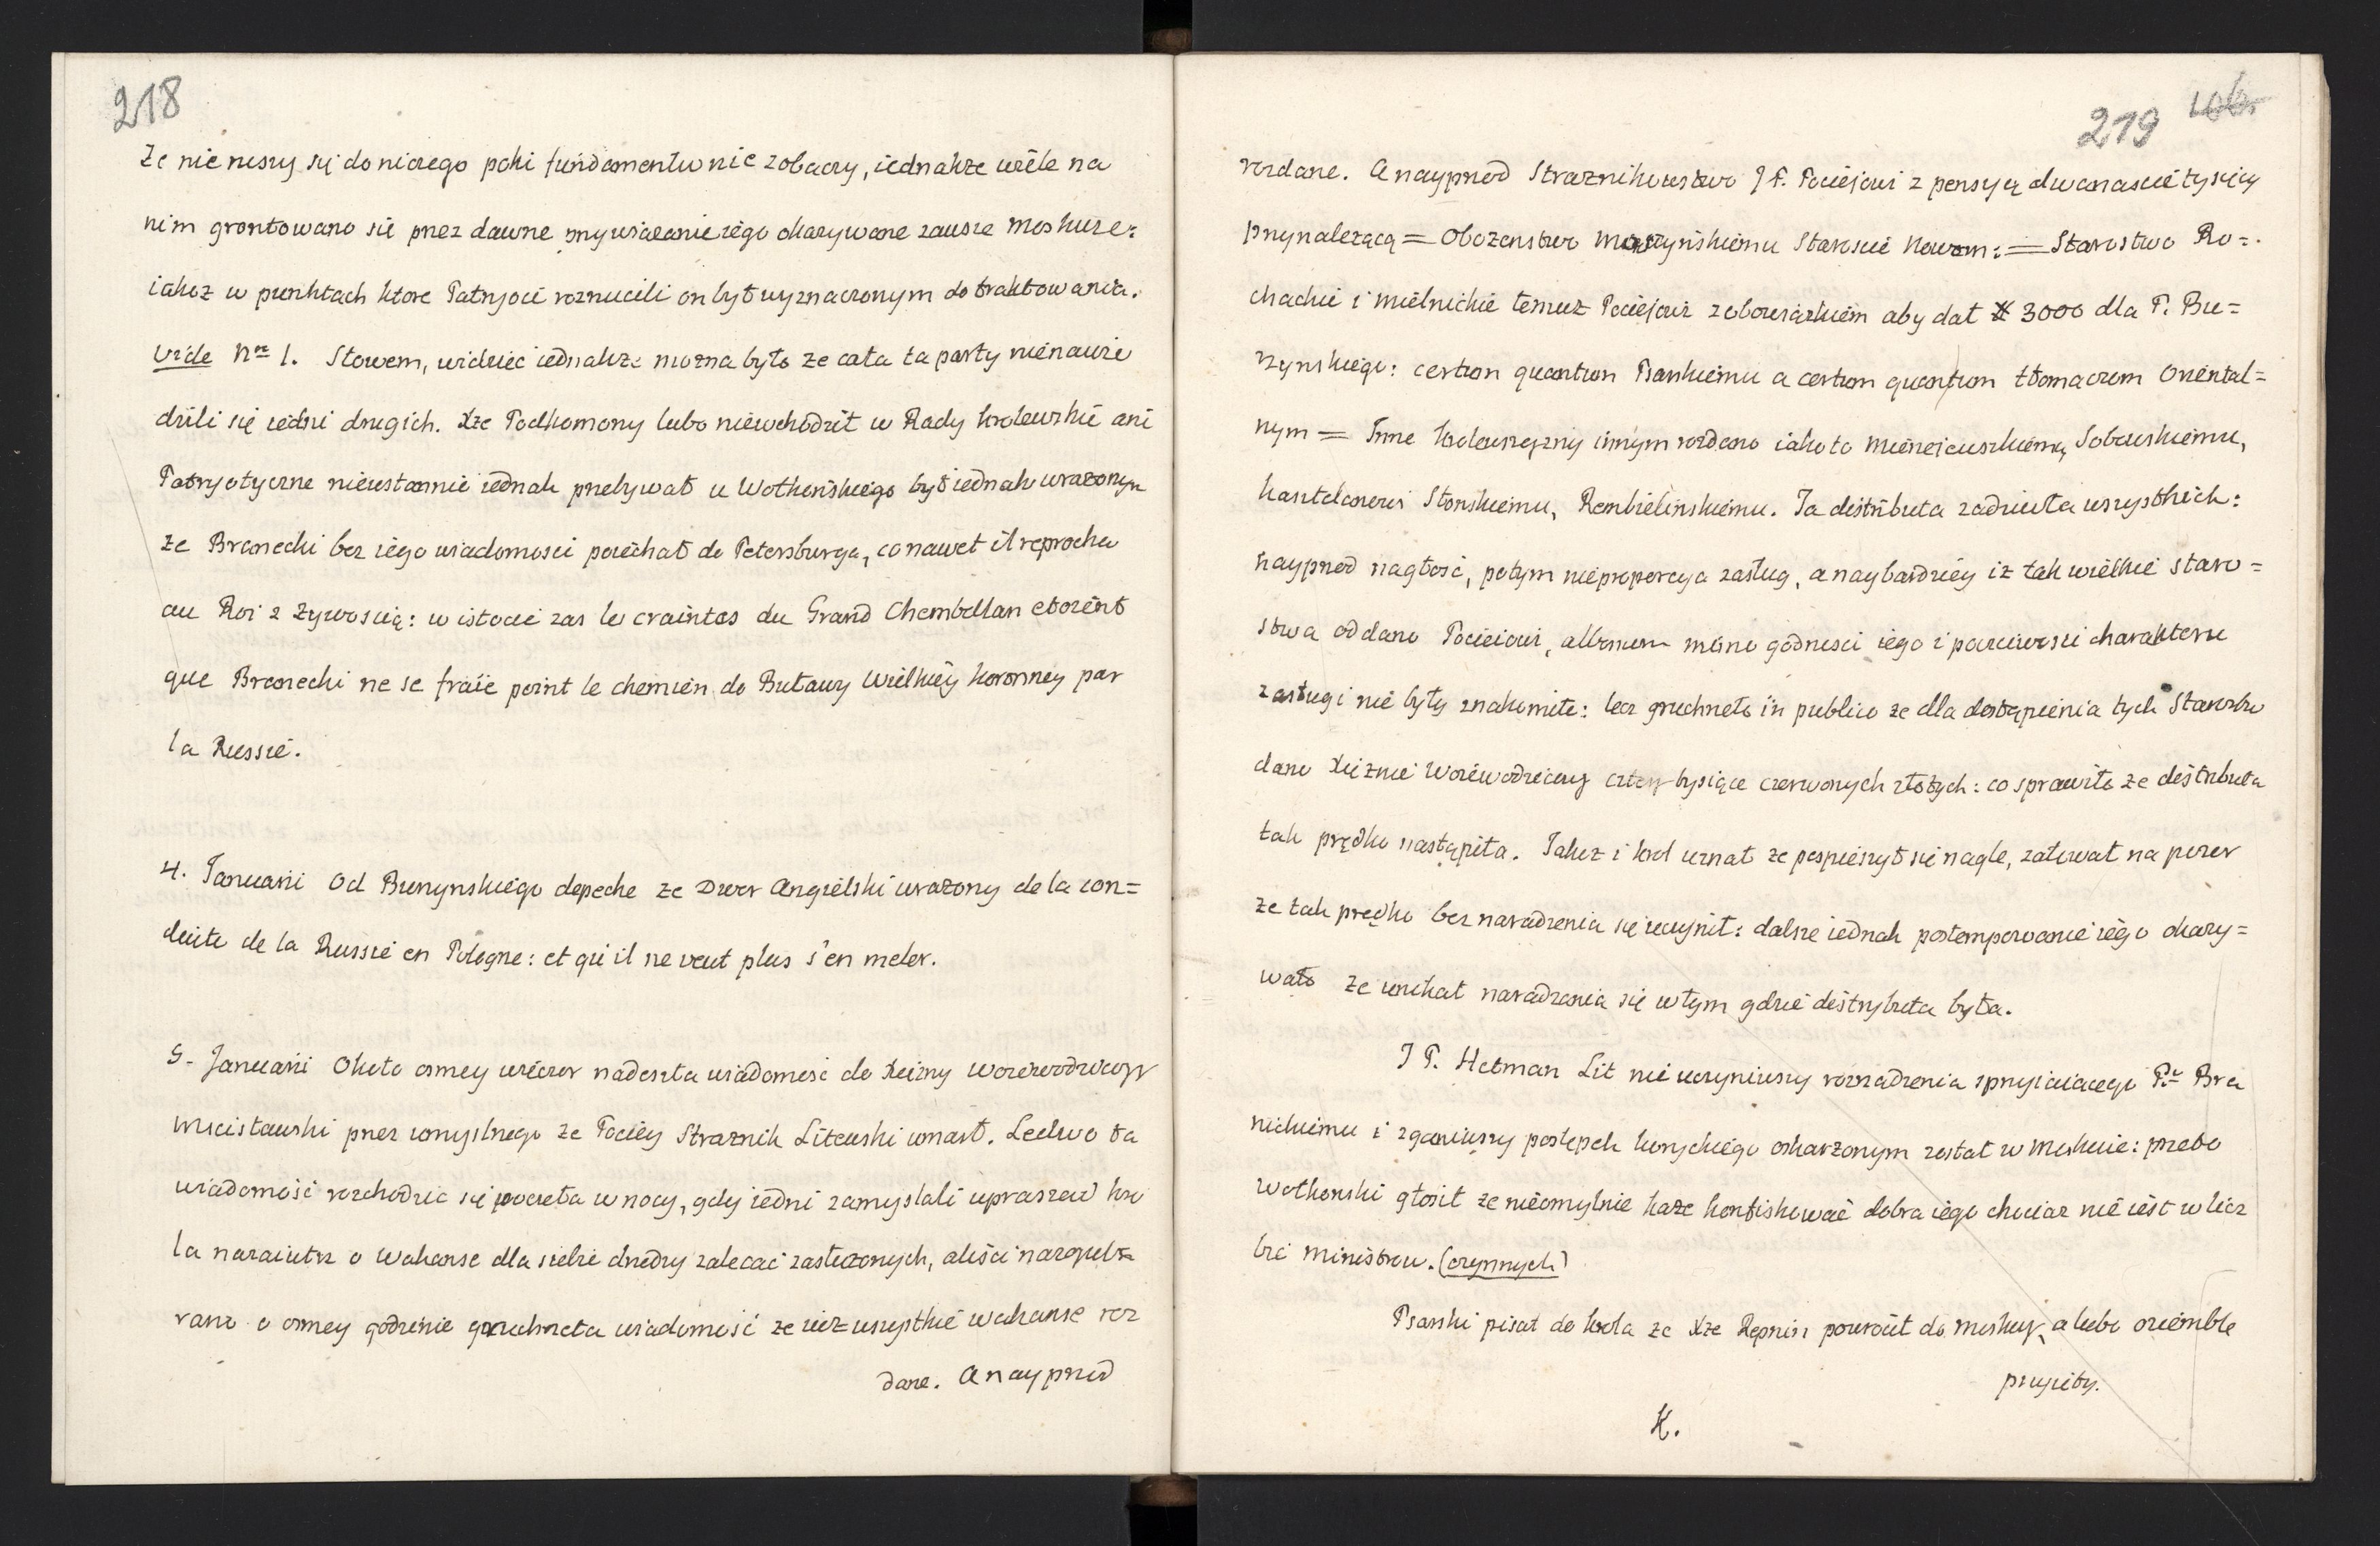 218
że nie ruszy się do niczego poki fundamentu nie zobaczy, iednakże wiele na
nim grontowano się przez dawne przywiązanie iego okazywane zawsze Moskwie:
iakoż w punktach ktore Patryoci roznucili on był wyznaczonym do traktowania.
Vide Nro 1. Słowem, widzieć iednakże można było ze cała ta party nienawi
dzili się iedni drugich. Xże Podkomorzy lubo niewchodził w Rady krolewskie ani
Patryotyczne nieustannie iednak przebywał u Wołkońskiego był iednak urazonym
ze Branecki bez iego wiadomosci poiechał do Petersburga, co nawet il reprocha
au Roi z zywoscią: w istocie zas les craintes du Grand Chambellan etoient
que Branecki ne se fraie point le chemien do Buławy Wielkiey koronney par
la Russie.
4. Januarii Od Burzynskiego depeche ze Dwor Angielski urazony de la con=
duite de la Russie en Pologne: et qu'il ne veut plus s'en meler.
5. Januarii Około osmey wieczor nadeszła wiadomosc do Xiezny Woiewodziczy
Mscisławski przez umyslnego ze Pociey Straznik Litewski umarł. Ledwo ta
wiadomość rozchodzic się poczeła w nocy, gdy iedni zamyslali upraszać kro
la nazaiutrz o Wakanse dla siebie drudzy zalecać zasłuzonych, aliści nazaiutrz
rano o osmey godzinie gruchneła wiadomość ze iuz wszystkie wakanse roz
dane. A nayprzod
219
rozdane. A nayprzod Straznikowstwo J P. Pociejowi z pensyą dwanascie tysięcy
przynalezącą = Obozenstwo Moszynskiemu Staroscie Nowom: = Starostwo Ro=
chackie i Mielnickie temuz Pociejowi z obowiązkiem aby dał # 3000 dla P. Bu=
rzynskiego: certum quantum Psarskiemu a certum quantum tłomaczom Oriental=
nym = Inne krolewszczyzny innym rozdano iako to Mieniewskiemu, Sobolewskiemu,
kasztelanowi Słonskiemu, Rembielinskiemu. Ta distributa zadziwiła wszystkich:
nayprzod nagłość, potym nieproporcya zasług, a naybardziey iz tak wielkie staro=
stwa oddano Pocieiowi, albowiem mimo godnosci iego i poczciwosci charakteru
zasługi nie były znakomite: lecz gruchneło in publico ze dla dostąpienia tych Starostw
dano Xiężnie Woiewodziczey cztery tysiące czerwonych złotych: co sprawiło ze distributa
tak prędko nastąpiła. Jakoz i krol uznał ze pospieszył się nagle, załował na pozor
ze tak prędko bez naradzenia się uczynił: dalsze iednak postempowanie iego okazy=
wało ze unikał naradzenia się w tym gdzie distrybuta była.
J P. Hetman Lit nie uczyniwszy rozrządzenia sprzyiaiącego Pu Bra
nickiemu i zganiwszy postępek koryckiego oskarzonym został w Moskwie: przeto
Wołkonski głosił ze nieomylnie kaze konfiskować dobra iego chociaz nie iest w licz
bie Ministrow. (czynnych)
Psarski pisał do krola ze Xże Repnin powrocił do Moskwy, a lubo oziemble
przyięty.
K.